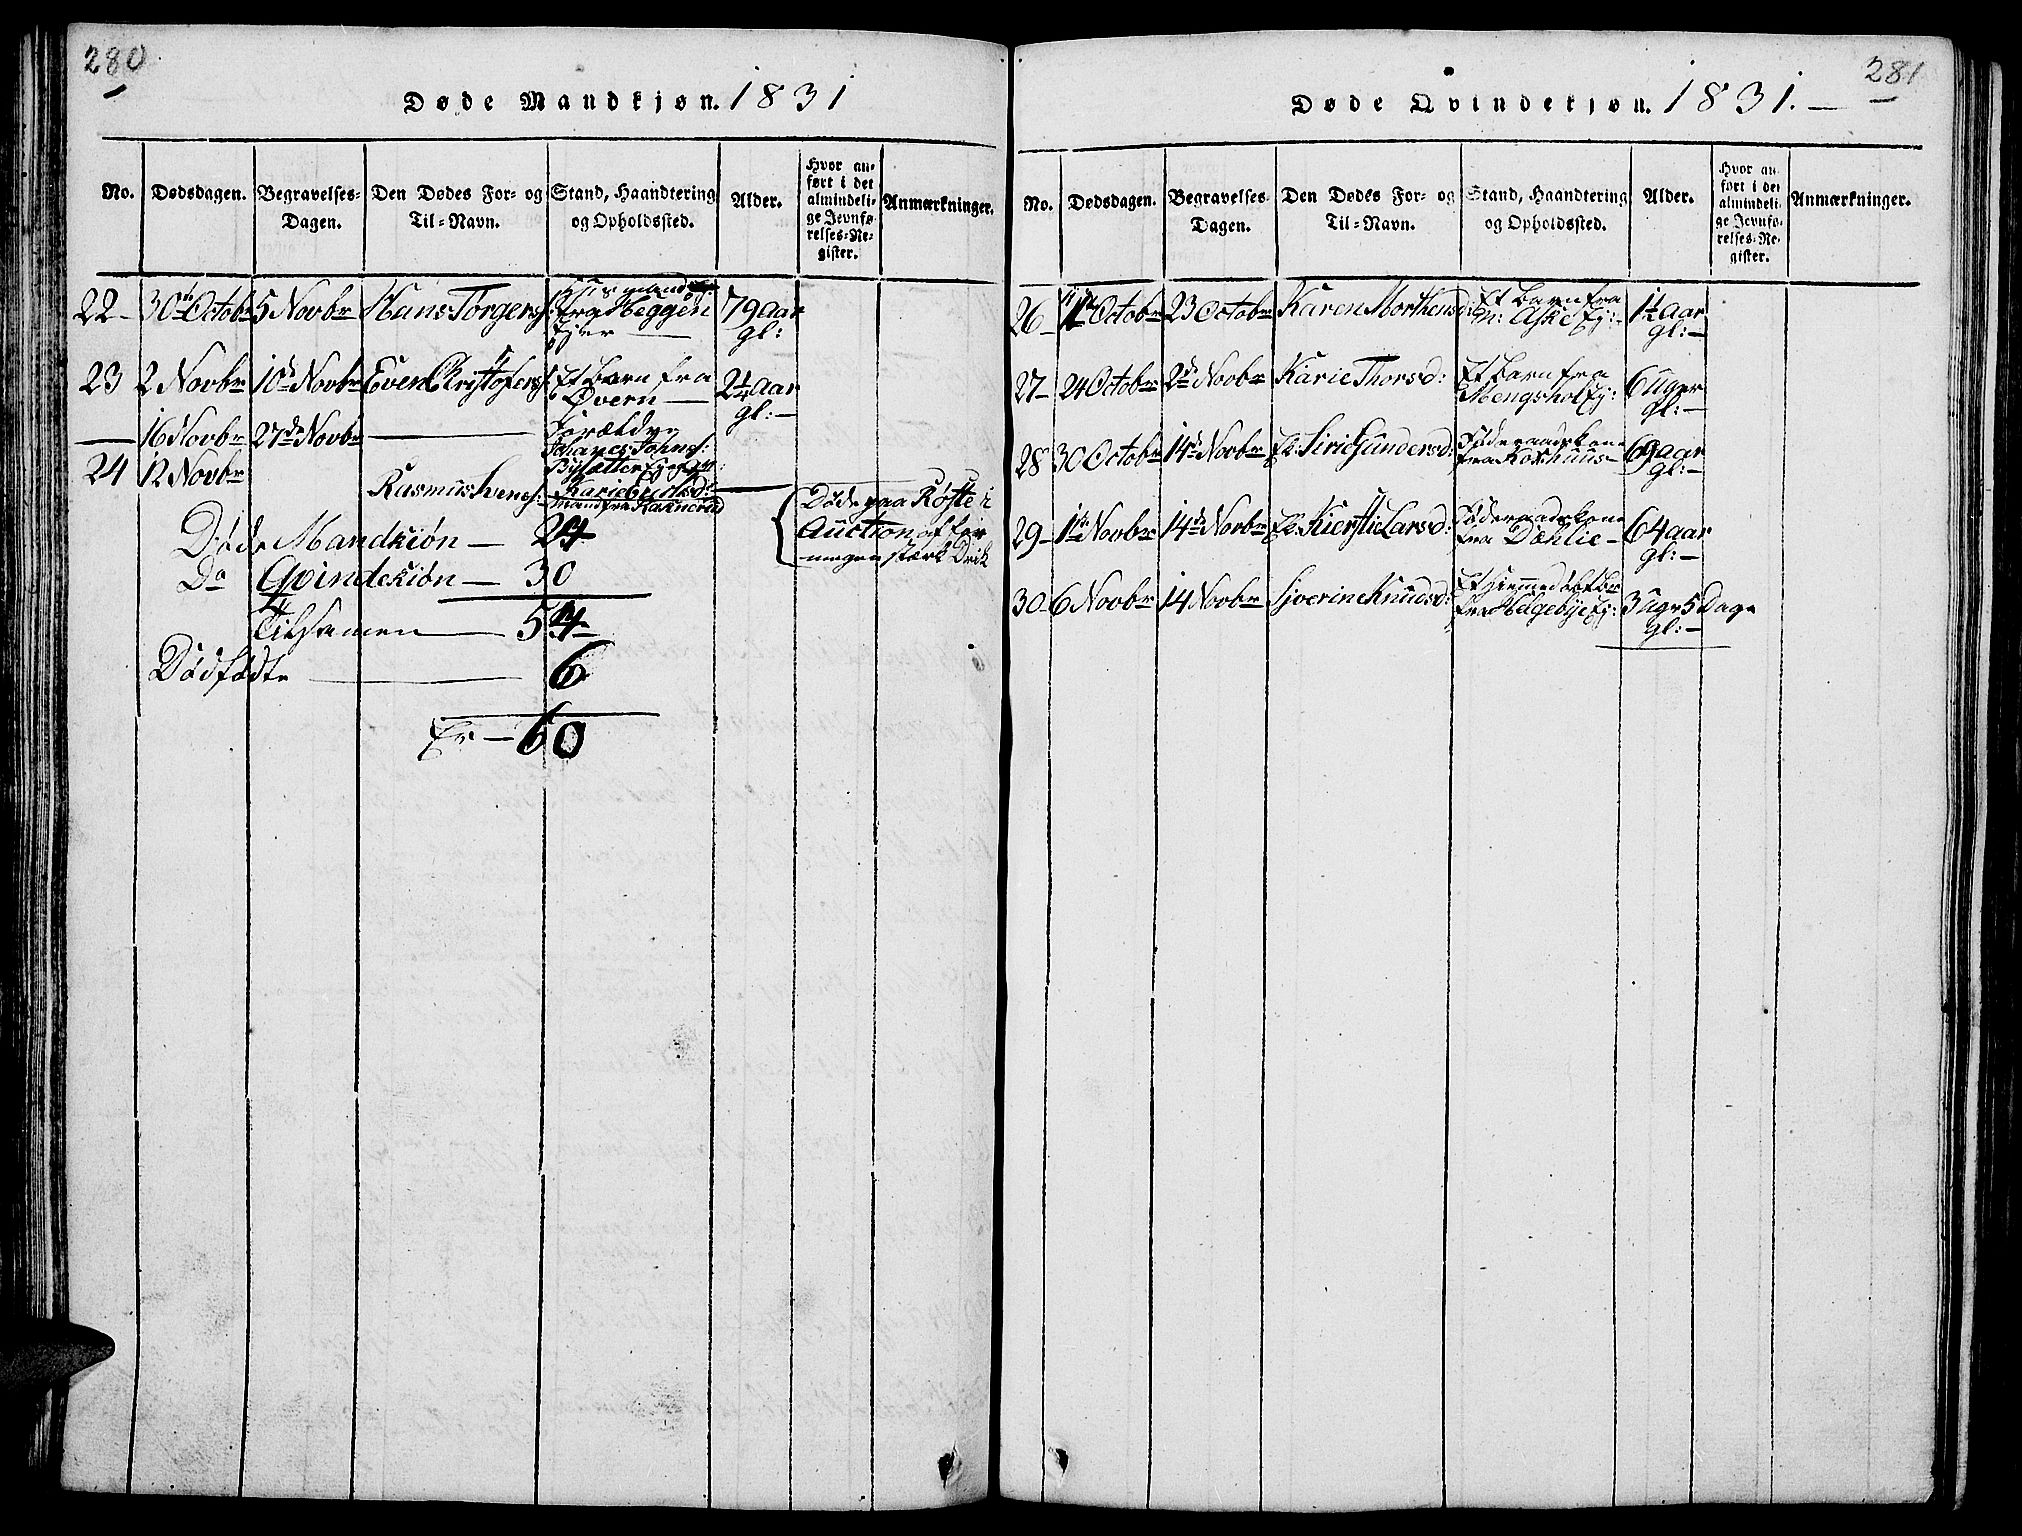 280
Døde Mandkjøn. 1831
No.
Dødsdagen.
Begravelses-
Dagen.
Den Dødes For- og
Til-Navn.
Stand, Haandtering
og Opholdssted.
Alder.
Hvor an-
ført i det
almindeli-
ge Jevnfø-
relses-Re-
gister.
Anmærkninger.
22 - 30 Octobr 5 Novbr Hans Torgers: Huusmand
fra Heggen
Eier 79 aar
gl:
23 2 Novbr 10de Novbr Even Christofers: Et barn fra
Øvern 2 1/4 aar
gl:
— 16 Novbr 27de Novbr — Forældre
Johanes Johns:
24 12 Novbr
Rasmus Svens: Karie
Mand fra
Døde paa Røste i
Auction af for
megen stærk Drik
Døde Mandkiøn — 24
Do Qvindekiøn — 30
Tilsamen — 54
Dødfødte — 6
Er — 60
281
Døde Qvindekjøn. 1831.
No.
Dødsdagen.
Begravelses-
Dagen.
Den Dødes For- og
Til-Navn.
Stand, Haandtering
og Opholdssted.
Alder.
Hvor an-
ført i det
almindeli-
ge Jevnfø-
relses-Re-
gister.
Anmærkninger.
26 - Octobr 23 Octobr Karen Morthensd: Et barn fra
Aske Ej: 1 1/2 Aar
gl:
27 - 24 Octobr 2de Novbr Karie Thorsd: Et barn fra
Mengshol Ej: 6 uger
gl:
28 30 Octobr 14de Novbr Ek: Siri Gundersd: Føderaadskone
fra Koxhuus 69 aar
gl:
29 - 1te Novbr 14de Novbr Ek: Kierstie Larsd: Føderaadskone
fra Dæhlie 64 aar
gl:
30 - 6 Novbr 14 Novbr Sjverine Knudsd: Et hiemmedøbt Bn
fra Helgebye Ej: 3 uge 5 Dage
gl: